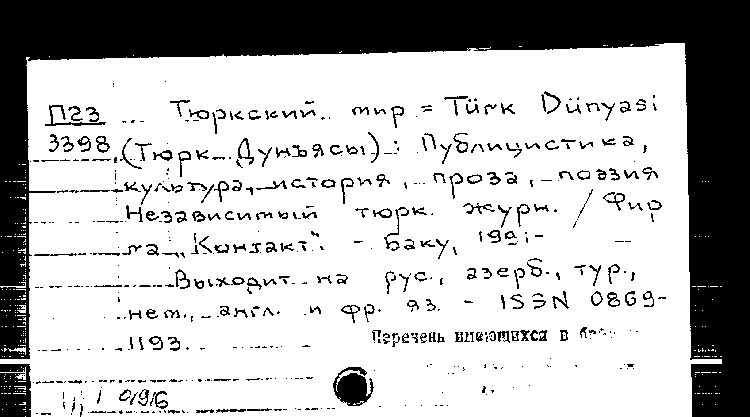 П23 ... Тюркский мир = Türk Dünyasi
3398 (Тюрк Дунъясы): Публицистика,
культура, история, проза, поэзия
Независимый тюрк. журн. / Фир
ма „Контакт". - Баку, 199i-
Выходит на рус., азерб., тур.,
нем., англ. и фр. яз. - ISSN 0869-
1193.
Перечень имеющихся в